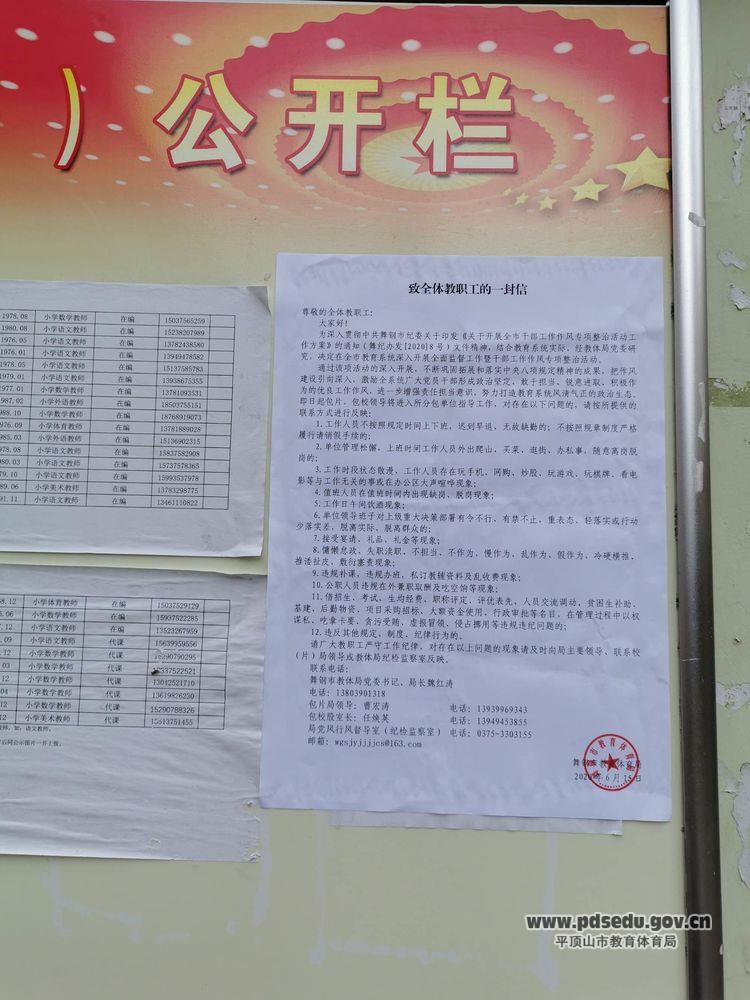 ）公开栏
1978.08 小学数学教师 在编 15037565259
1980.08 小学语文教师 在编 15238207989
1976.01 小学语文教师 在编 13782438580
1976.05 小学语文教师 在编 13949478582
1975.01 小学语文教师 在编 15137585783
1979.01 小学语文教师 在编 13938675355
1971.01 小学数学教师 在编 13781093531
1987.02 小学外语教师 在编 18503755151
1988.10 小学数学教师 在编 18768919073
1976.09 小学体育教师 在编 13781889028
1985.03 小学外语教师 在编 15136902315
小学语文教师 在编 15837582908
1980.03 小学语文教师 在编 15737578365
小学数学教师 在编 15993537978
小学美术教师 在编 13783298775
小学语文教师 在编 13461110822
小学体育教师 在编 15037529129
小学数学教师 在编 15937522285
小学数学教师 在编 13523267959
小学语文教师 代课 15639959556
小学数学教师 代课
小学语文教师 代课
小学语文教师 代课 13042521710
小学数学教师 代课 13619826230
小学数学教师 代课 15290788326
小学美术教师 代课 15513751455
致全体教职工的一封信
尊敬的全体教职工:
大家好!
为深入贯彻中共舞钢市纪委关于印发《关于开展全市干部工作作风专项整治活动工
作方案》的通知（舞纪办发[2020]8号）文件精神，结合教育系统实际，经教体局党委研
究，决定在全市教育系统深入开展全面监督工作暨干部工作作风专项整治活动。
通过该项活动的深入开展，不断巩固拓展和落实中央八项规定精神的成果，把作风
建设引向深入，激励全系统广大党员干部形成政治坚定、敢于担当、锐意进取、积极作
为的优良工作作风，进一步增强责任担当意识，努力打造教育系统风清气正的政治生态。
即日起包片、包校领导将进入所分包单位指导工作，对存在以下问题的，请按所提供的
联系方式进行反映:
1.工作人员不按照规定时间上下班，迟到早退、无故缺勤的；不按照规章制度严格
履行请销假手续的；
2.单位管理松懈，上班时间工作人员外出爬山、买菜、逛街、办私事，随意离岗脱
岗的；
3.工作时段状态散漫，工作人员存在玩手机、网购、炒股、玩游戏、玩棋牌、看电
影等与工作无关的事或在办公区大声喧哗现象；
4.值班人员在值班时间内出现缺岗、脱岗现象；
5.工作日午间饮酒现象；
6.单位领导班子对上级重大决策部署有令不行、有禁不止，重表态、轻落实或行动
少落实差，脱离实际、脱离群众的；
7.接受宴请、礼品、礼金等现象；
8.慵懒怠政、失职渎职、不担当、不作为、慢作为、乱作为、假作为、冷硬横推、
推诿扯皮、敷衍塞责现象；
9.违规补课、违规办班，私订教辅资料及乱收费现象；
10.公职人员违规在外兼职取酬及吃空饷等现象；
11.借招生、考试、生均经费、职称评定、评优表先、人员交流调动、贫困生补助、
基建、后勤物资、项目采购招标、大额资金使用、行政审批等名目，在管理过程中以权
谋私、吃拿卡要、贪污贿赂、虚报冒领、侵占挪用等违规违纪问题的；
12.违反其他规定、制度、纪律行为的。
请广大教职工严守工作纪律，对存在以上问题的现象请及时向局主要领导、联系校
（片）局领导或教体局纪检监察室反映。
联系电话:
舞钢市教体局党委书记、局长魏红涛
电话: 13803901318
包片局领导: 曹宏涛 电话: 13939969343
包校股室长: 任焕英 电话: 13949453855
局党风行风督导室（纪检监察室） 电话: 0375-3303155
邮箱: wgsjyjjjjcs@163.com
舞钢市教育体育局
2020年6月15日
www.pdsedu.gov.cn
平顶山市教育体育局